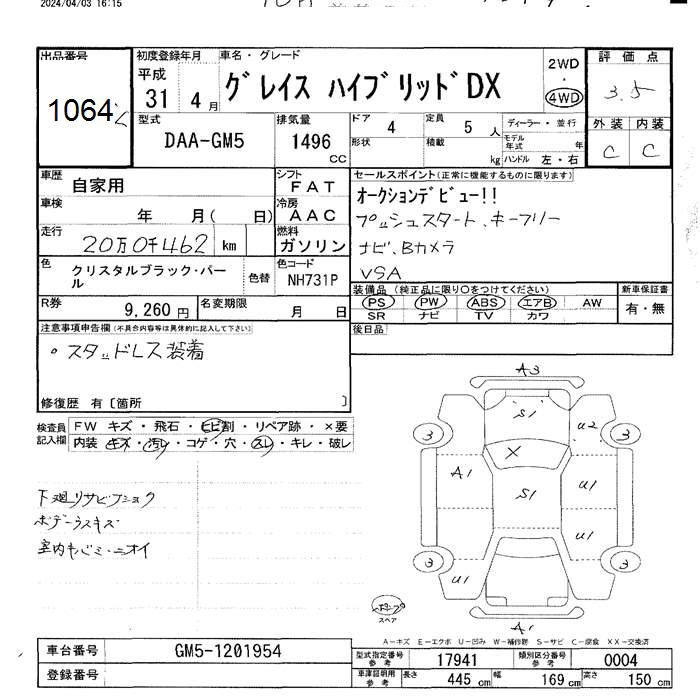 2024/04/03 16:15
出品番号
1064
初度登録年月
平成
31 4月
車名・グレード
グレイス ハイブリッドDX
2WD
・
4WD
評価点
3.5
外装 内装
C C
型式
DAA-GM5
排気量
1496
CC
ドア
4
定員
5 人
形状
積載
kg
ディーラー・並行
モデル年式 年
ハンドル 左・右
車歴
自家用
車検
年 月( 日)
走行
20万0千462 km
色
クリスタルブラック・パール
色替
シフト
FAT
冷房
AAC
燃料
ガソリン
色コード
NH731P
R券
9,260円
名変期限
月 日
セールスポイント(正常に機能するものに限ります)
オークションデビュー!!
プッシュスタート、キーフリー
ナビ、Bカメラ
VSA
装備品 (純正品に限り○をつけてください)
PS PW ABS エアB AW
SR ナビ TV カワ
新車保証書
有・無
後日品
注意事項申告欄(不具合内容等は具体的に記入して下さい)
○スタッドレス装着
修復歴 有〔箇所 〕
検査員記入欄
FW キズ・飛石・ヒビ割・リペア跡・×要
内装・キズ・汚レ・コゲ・穴・スレ・キレ・破レ
下廻リサビフショク
ボデーラスキズ
A3
S1
U2
3
3
X
A1
S1
U1
U1
3
3
U1
A1
スペア
A-キズ E-エクボ U-凹み W-補修跡 S-サビ C-腐食 XX-交換済
車台番号
GM5-1201954
登録番号
型式指定番号
参考
17941
類別区分番号
参考
0004
車庫証明用
参考
長さ 445 cm
幅 169 cm
高さ 150 cm